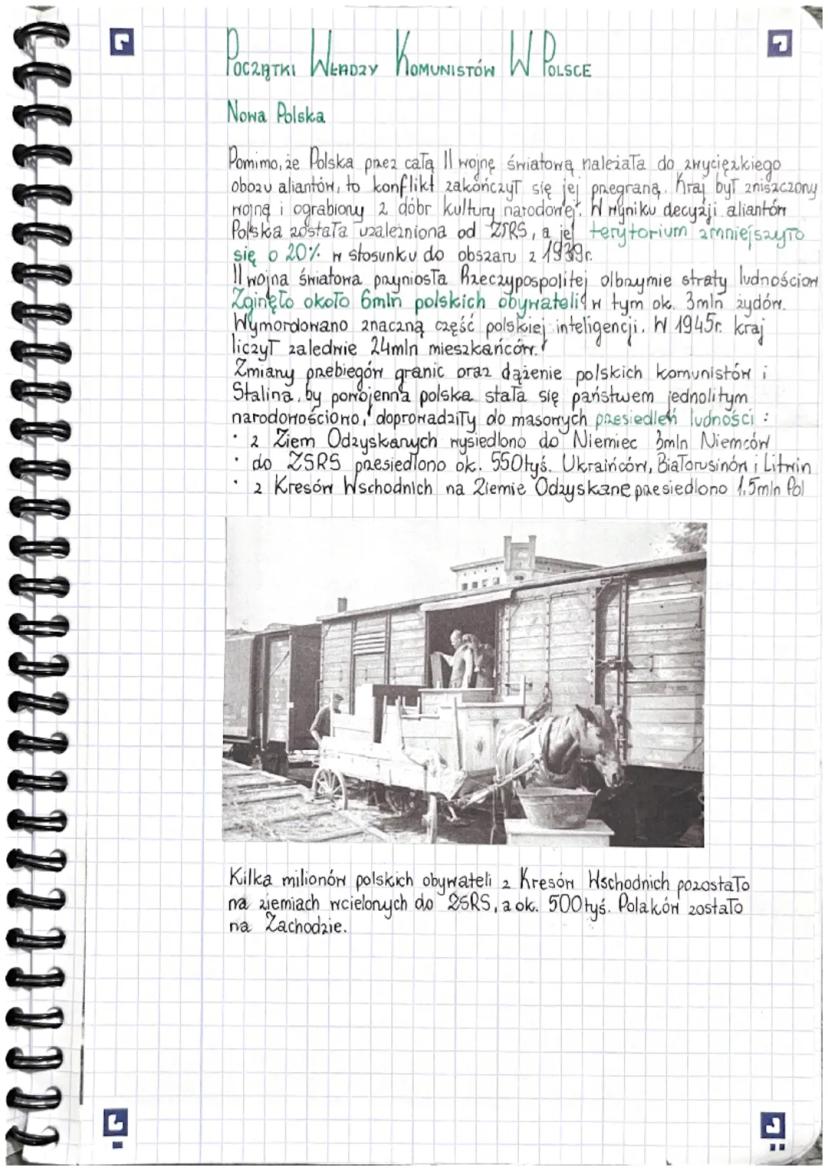 POCZĄTKI WŁADZY KOMUNISTÓW W POLSCE
Nowa Polska
Pomimo, że Polska przez całą II wojnę światową należała do zwycięzkiego
obozu aliantów, to konflikt zakończył się jej przegraną. Kraj był zniszczony
wojną i ograbiony z dóbr kultury narodowej. W wyniku decyzji aliantów
Polska została uzależniona od ZSRS, a jej terytorium zmniejszyło
się o 20% w stosunku do obszaru z 1939r.
II wojna światowa przyniosła Rzeczypospolitej olbrzymie straty ludnościow
Zginęło około 6mln polskich obywateli w tym ok. 3mln żydów.
Wymordowano znaczną część polskiej inteligencji. W 1945r. kraj
liczył zaledwie 24mln mieszkańców.
Zmiany przebiegów granic oraz dążenie polskich komunistów i
Stalina, by powojenna polska stała się państwem jednolitym
narodowościowo, doprowadziły do masowych przesiedleń ludności:
• z Ziem Odzyskanych wysiedlono do Niemiec 3mln Niemców
• do ZSRS przesiedlono ok. 550tyś. Ukraińców, Białorusinów i Litwin
• z Kresów Wschodnich na Ziemie Odzyskane przesiedlono 1,5mln Pol
Kilka milionów polskich obywateli z Kresów Wschodnich pozostało
na ziemiach wcielonych do ZSRS, a ok. 500tyś. Polaków zostało
na Zachodzie.